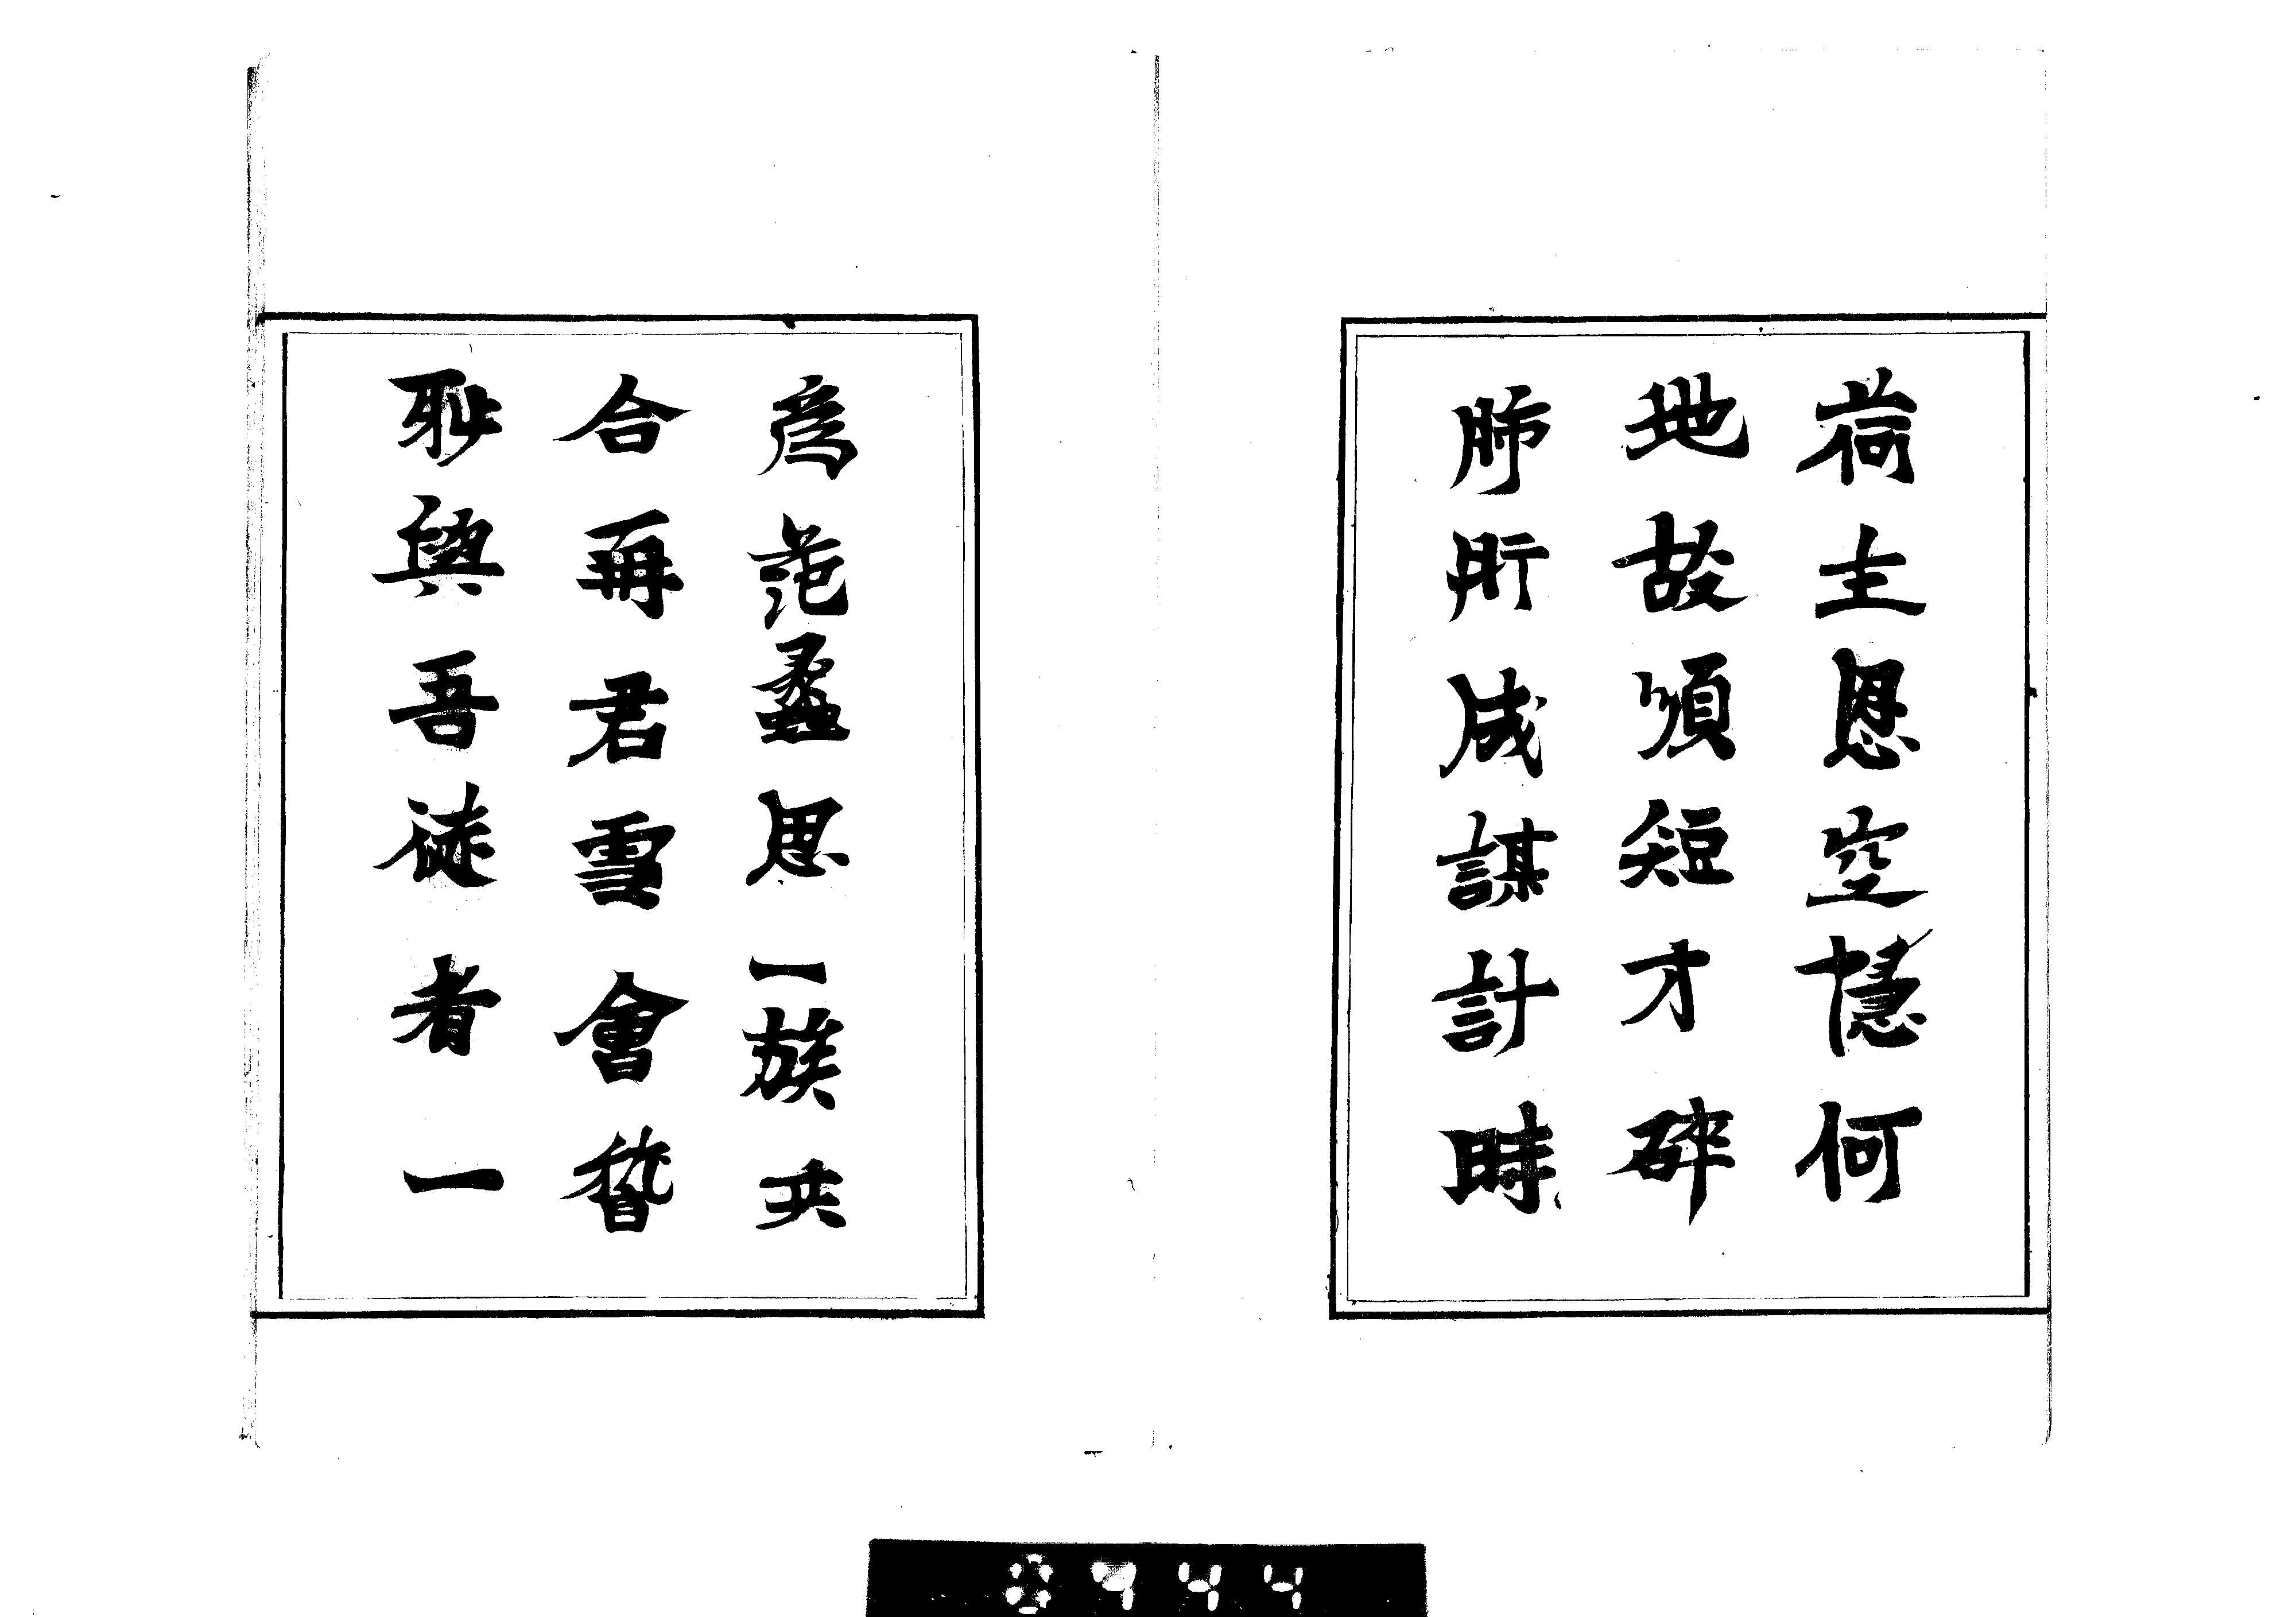 荷主恩空隱何
地故須短才碎
肺肝成謀計時
為范蠡思一族共
合再君雪會稽
耻與吾徒者一